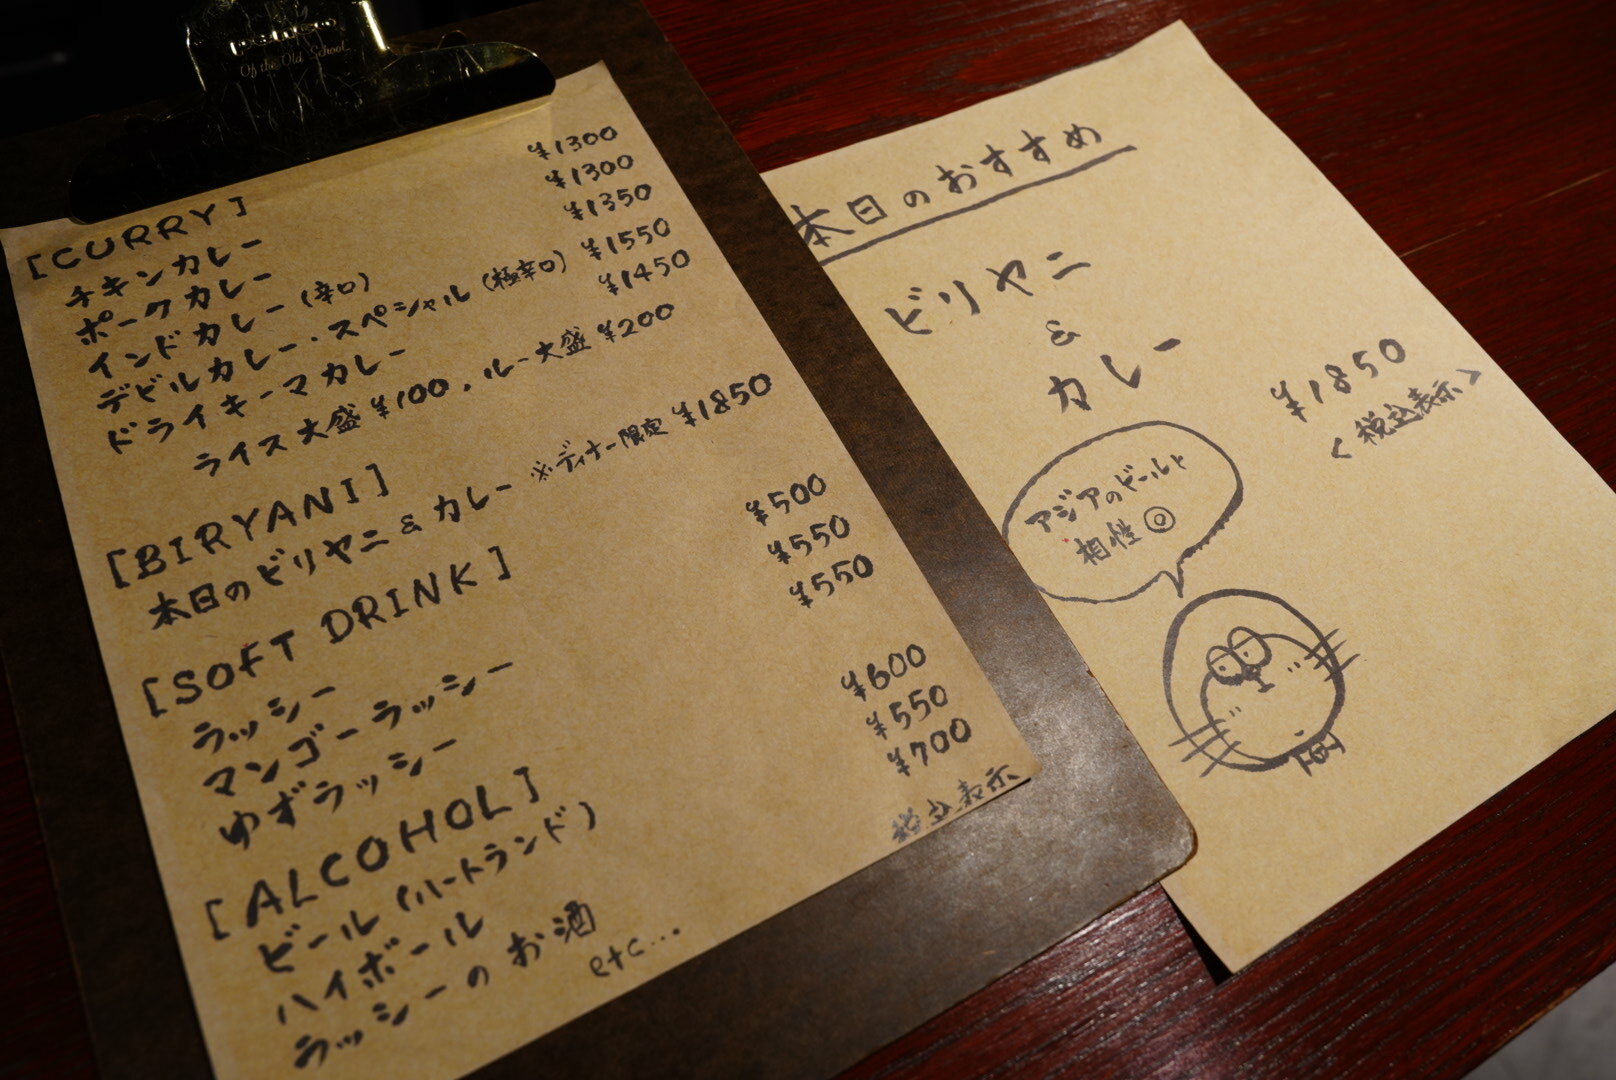 Of the Old School
[CURRY]
チキンカレー ¥1300
ポークカレー ¥1300
インドカレー(辛口) ¥1350
デビルカレー・スペシャル(極辛口) ¥1550
ドライキーマカレー ¥1450
ライス大盛¥100, ルー大盛¥200
[BIRYANI]
本日のビリヤニ&カレー ※ディナー限定 ¥1850
[SOFT DRINK]
ラッシー ¥500
マンゴーラッシー ¥550
ゆずラッシー ¥550
[ALCOHOL]
ビール(ハートランド) ¥600
ハイボール ¥550
ラッシーのお酒 ¥700
etc...
税込表示
本日のおすすめ
ビリヤニ
&
カレー
¥1850
<税込表示>
アジアのビールと
相性◎